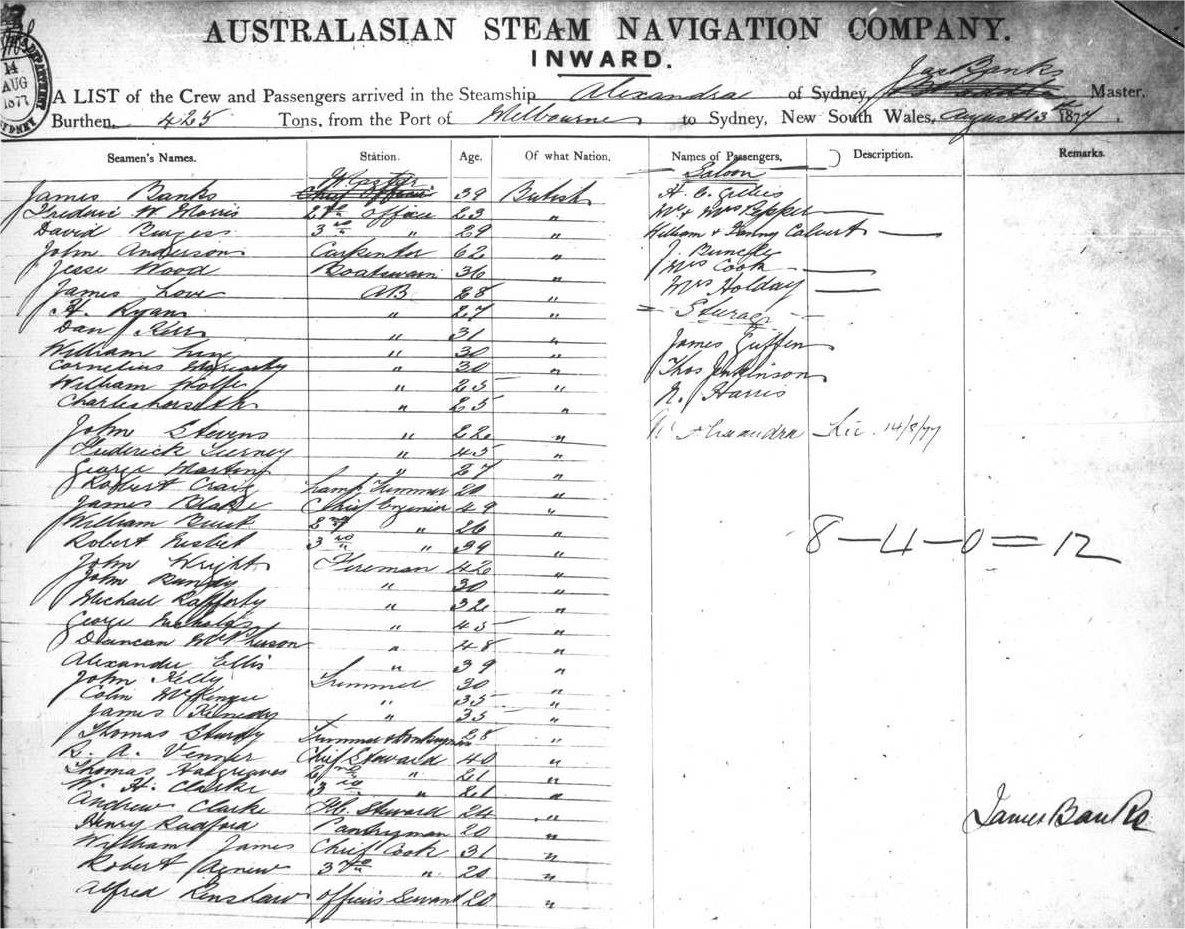 14
AUG
1877
SYDNEY
AUSTRALASIAN STEAM NAVIGATION COMPANY.
INWARD.
Jas Banks
A LIST of the Crew and Passengers arrived in the Steamship Alexandra of Sydney, Master.
Burthen, 425 Tons, from the Port of Melbourne to Sydney, New South Wales, August 13th 1877.
Seamen's Names. Station. Age. Of what Nation. Names of Passengers. Description. Remarks.
Saloon
James Banks Chief Officer 39 British H. C. Gillies
Frederic W Morris 2nd Officer 23 " Mr & Mrs Pepper
David Burgess 3rd " 29 " William & Fanny Calvert
John Anderson Carpenter 62 " J.
Jesse Wood Boatswain 36 " Mrs Cook
James Love AB 28 " Mrs Holday
H. Ryan " 27 "
Dan Kerr " 31 " James Giffen
William " 30 "
Cornelius " 30 " Thos Jenkinson
William Wolfe " 25 " N. Harris
Charles " 25 "
John Stevens " 22 " Alexandra 14/8/77
Frederick Tierney " 45 "
George Martin " 27 "
Robert Craig Lamp Trimmer 20 "
James Blake Chief Enginier 49 "
William 2nd " 26 "
Robert Nisbet 3rd " 39 "
8 - 4 - 0 = 12
John Wright Fireman 42 "
John Bundy " 30 "
Michael Rafferty " 32 "
George Nicholas " 45 "
Duncan McPherson " 48 "
Alexander Ellis " 39 "
John Kelly Trimmer 30 "
Colin McKenzie " 35 "
James Kenedy " 35 "
Thomas Sturdy Trimmer & 28 "
A. Venner Chief Steward 40 "
Thomas Hargreaves 2nd " 21 "
W. H. Clarke 3rd " 21 "
Andrew Clarke Steward 24 "
James Banks
Henry Radford Pantryman 20 "
William James Chief Cook 31 "
Robert Agnew " 20 "
Alfred Renshaw Officers Servant 20 "